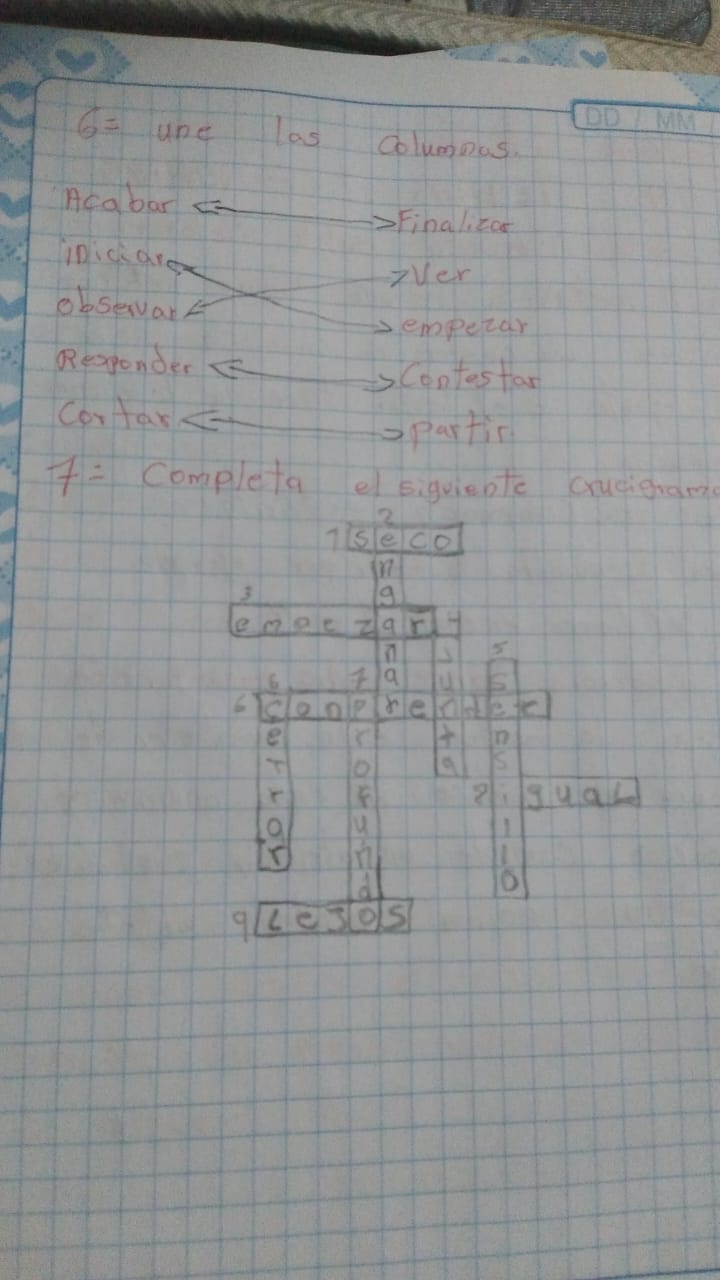 DD / MM /
6= une las columnas.
Acabar Finalizar
iniciar Ver
observar empezar
Responder Contestar
Cortar partir.
7= Completa el siguiente crucigrama
2
1 seco
n
g
3
empezar 4
n J 5
6 7 a u s
6 comprender
e r t n
r o a s
r f 8 igual
a u l
r n l
d o
9 Lejos